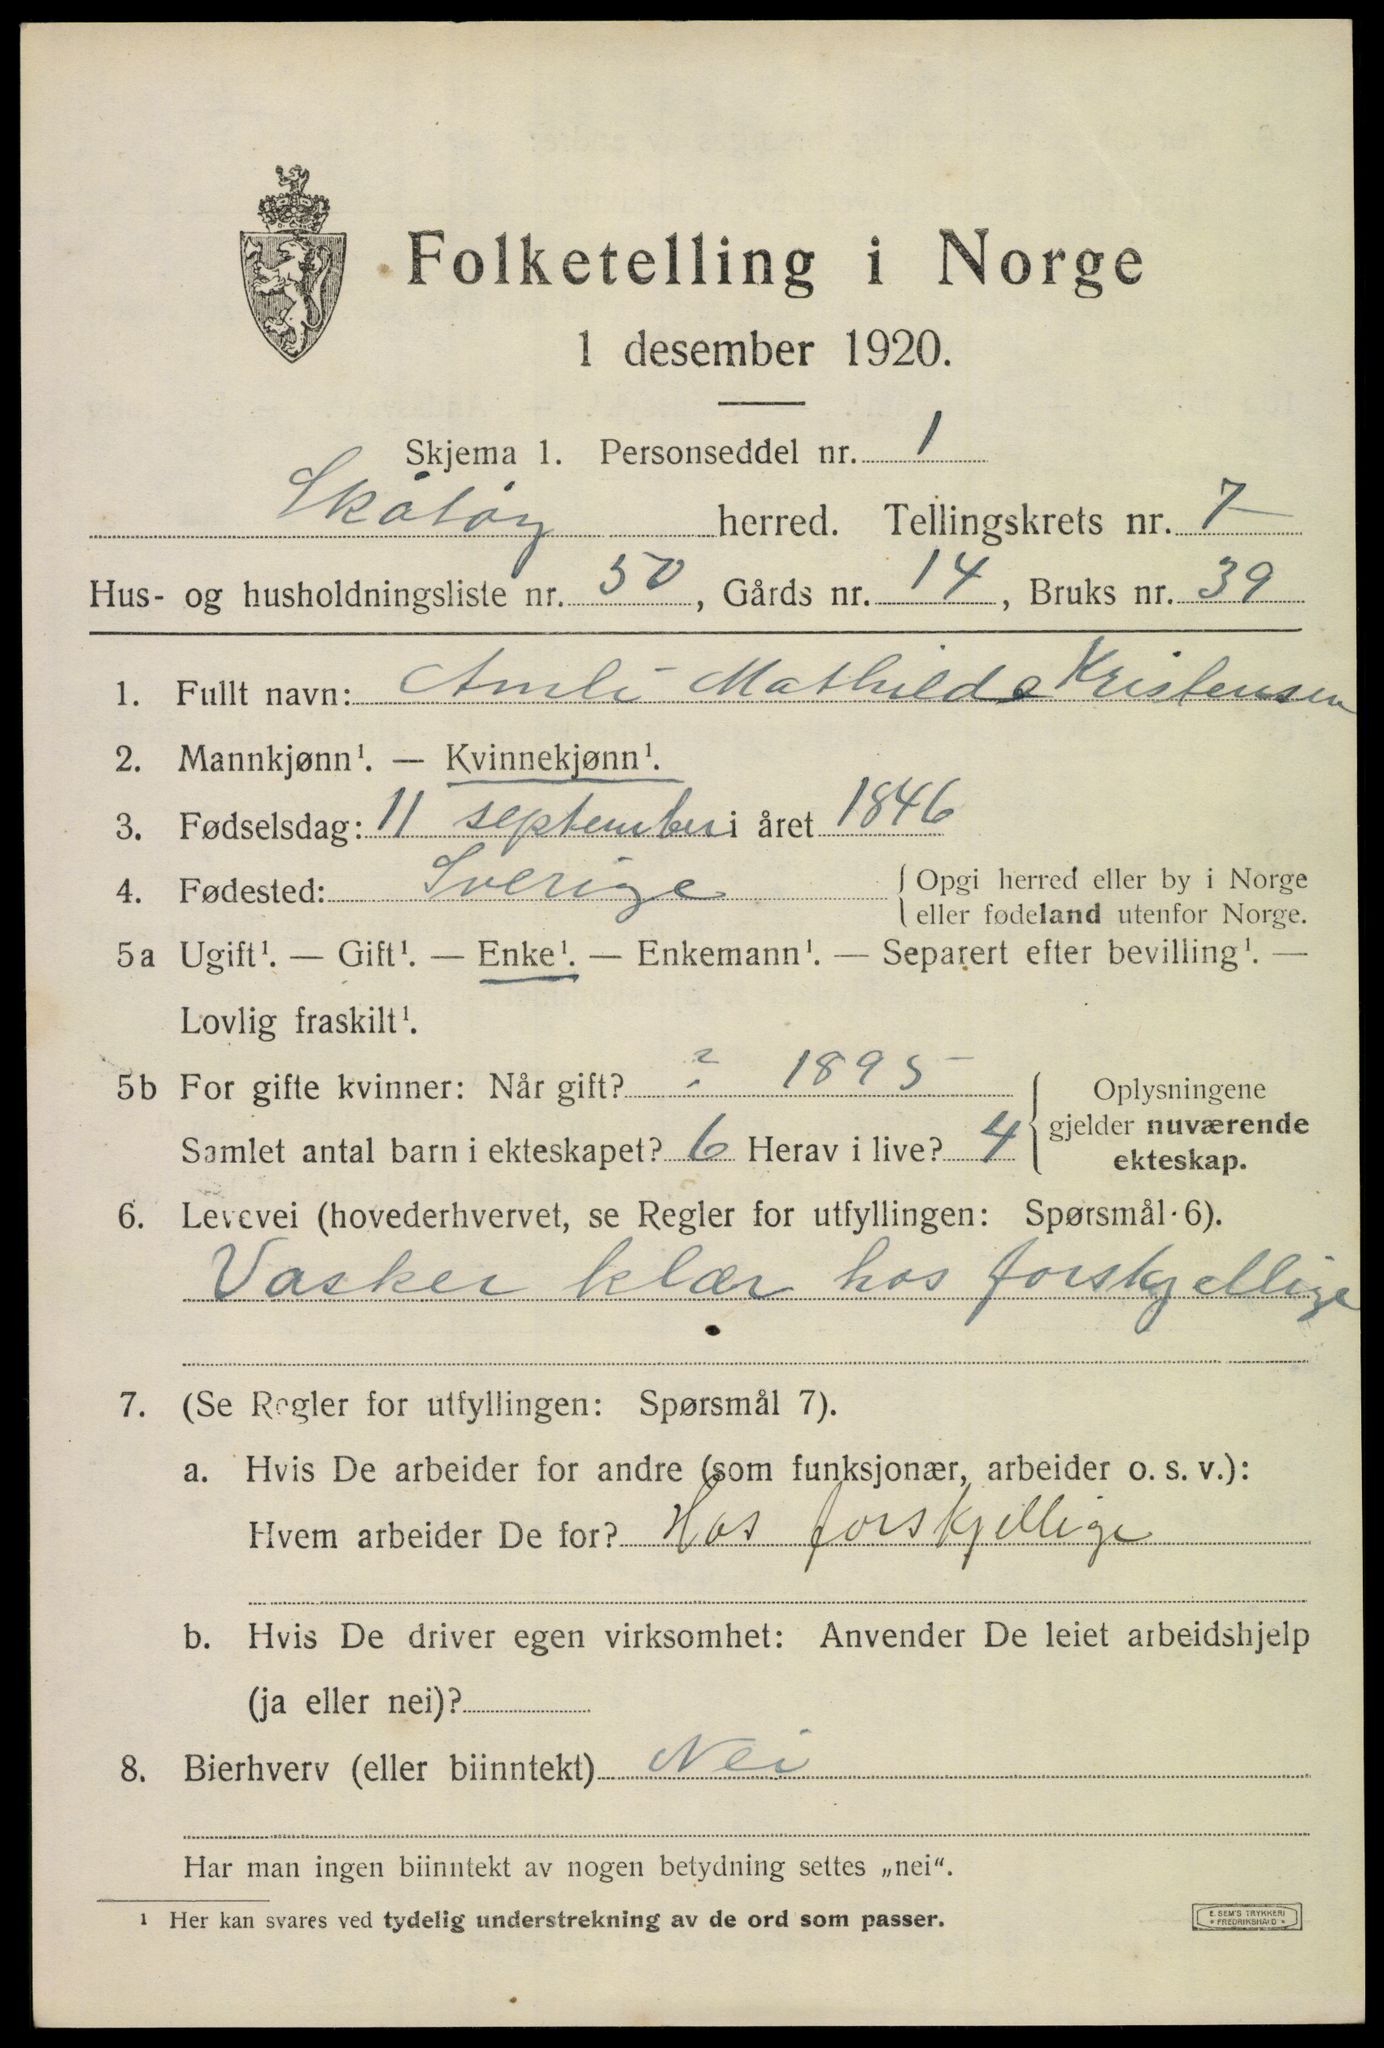 Folketelling i Norge
1 desember 1920.
Skjema 1. Personseddel nr. 1
Skåtøy herred. Tellingskrets nr. 7
Hus- og husholdningsliste nr. 50, Gårds nr. 14, Bruks nr. 39
1. Fullt navn: Amli Mathilde Kristensen
2. Mannkjønn¹. — Kvinnekjønn¹.
3. Fødselsdag: 11 september i året 1846
4. Fødested: Sverige { Opgi herred eller by i Norge
eller fødeland utenfor Norge.
5a Ugift¹. — Gift¹. — Enke¹. — Enkemann¹. — Separert efter bevilling¹. —
Lovlig fraskilt¹.
5b For gifte kvinner: Når gift? ? 1895
Samlet antal barn i ekteskapet? 6 Herav i live? 4
Oplysningene
gjelder nuværende
ekteskap.
6. Levevei (hovederhvervet, se Regler for utfyllingen: Spørsmål 6).
Vasker klær hos forskjellige
7. (Se Regler for utfyllingen: Spørsmål 7).
a. Hvis De arbeider for andre (som funksjonær, arbeider o. s. v.):
Hvem arbeider De for? Hos forskjellige
b. Hvis De driver egen virksomhet: Anvender De leiet arbeidshjelp
(ja eller nei)?
8. Bierhverv (eller biinntekt) Nei
Har man ingen biinntekt av nogen betydning settes „nei“.
¹ Her kan svares ved tydelig understrekning av de ord som passer.
E. SEM'S TRYKKERI
FREDRIKSHALD